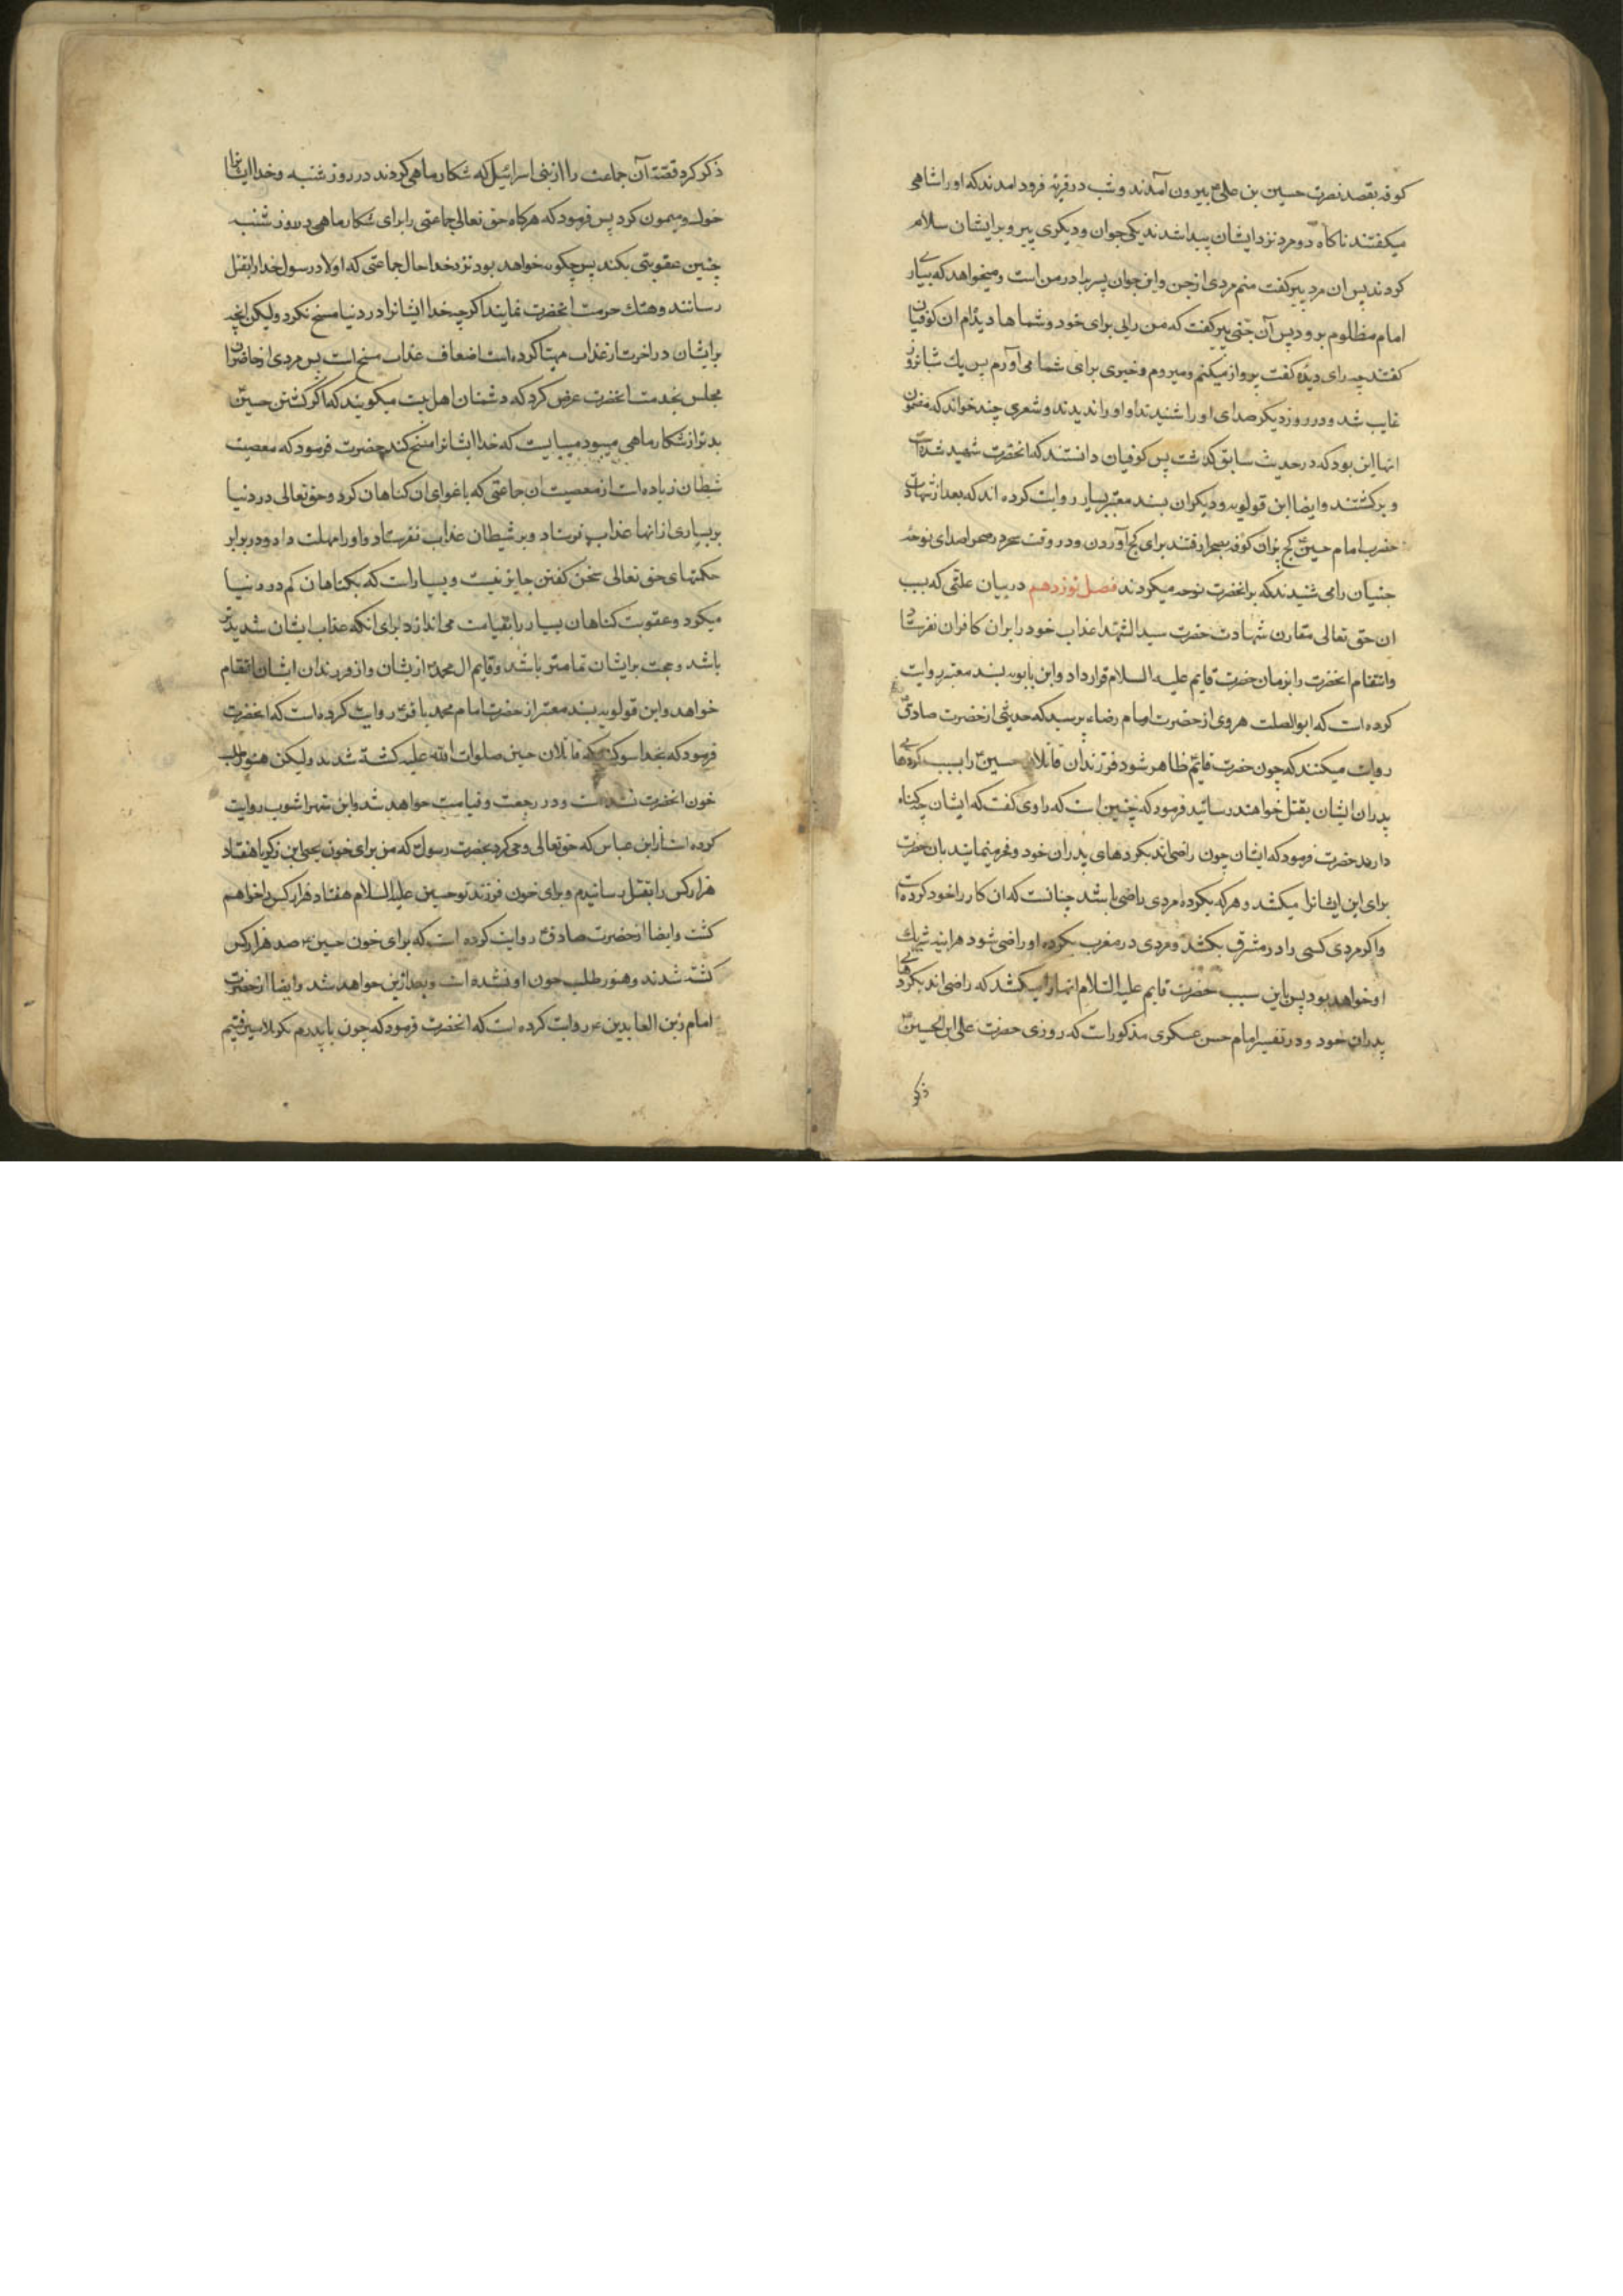 کوفه بقصد نصرت حسین بن علی بیرون آمدند و شب در قریه فرود امدند که او را شاهی
میکفتند ناکاه دو مرد نزد ایشان پیدا شدند یکی جوان و دیکری پیر و بر ایشان سلام
کردند پس ان مرد پیر کفت منم مردی از جن و این جوان پسر برادر من است و میخواهد که بیاری
امام مظلوم برود پس آن جنی پیر کفت که من رایی برای خود و شماها دیده‌ام ان کوفیان
کفتند چه رای دیدۀ کفت پرواز میکنم و میروم و خبری برای شما می‌آورم پس یك شبانروز
غایب شد و در روز دیکر صدای او را شنیدند و او را ندیدند و شعری چند خواند که مضمون
انها این بود که در حدیث سابق کذشت پس کوفیان دانستند که انحضرت شهید شده است
و برکشتند و ایضا ابن قولویه و دیکران بسند معتبر بسیار روایت کرده اند که بعد از شهادت
حضرت امام حسین کج پزان کوفه بصحرا رفتند برای کج آوردن و در وقت سحر در صحرا صدای نوحه
جنیان را می شنیدند که بر انحضرت نوحه میکردند فصل نوزدهم در بیان علتی که بسبب
ان حق تعالی مقارن شهادت حضرت سید الشهدا عذاب خود را بر ان کافران نفرستاد
و انتقام انحضرت را بزمان حضرت قایم علیه السلام قرار داد و ابن بابویه بسند معتبر روایت
کرده است که ابو الصلت هروی از حضرت امام رضا پرسید که حدیثی از حضرت صادق
روایت میکنند که چون حضرت قائم ظاهر شود فرزندان قاتلان حسین را بسبب کردهای
پدران ایشان بقتل خواهند رسانید فرمود که چنین است که راوی کفت که ایشان چه کناه
دارند حضرت فرمود که ایشان چون راضی‌اند بکردهای پدران خود و فخر مینمایند بان حضرت
برای این ایشانرا میکشد و هر که بکرده مردی راضی باشد چنانست که ان کار را خود کرده است
و اکر مردی کسی را در مشرق بکشد و مردی در مغرب بکرده او راضی شود هراینه شریك
او خواهد بود پس باین سبب حضرت قایم علیه السلام انها را میکشد که راضی اند بکردهای
پدران خود و در تفسیر امام حسن عسکری مذکور است که روزی حضرت علی ابن الحسین
ذکر
ذکر کرد قصه آن جماعت را از بنی اسرائیل که شکار ماهی کردند در روز شنبه و خدا ایشانرا
خوك و میمون کرد پس فرمود که هرکاه حق تعالی جماعتی را برای شکار ماهی در روز شنبه
چنین عقوبتی بکند پس چکونه خواهد بود نزد خدا حال جماعتی که اولاد رسول خدا را بقتل
رسانند و هتك حرمت انحضرت نمایند اکرچه خدا ایشانرا در دنیا مسخ نکرد ولیکن انچه
برایشان در اخرت از عذاب مهیا کرده است اضعاف عذاب مسخ است پس مردی از حاضران
مجلس بخدمت انحضرت عرض کرد که دشمنان اهل بیت میکویند که اکر کشتن حسین
بدتر از شکار ماهی میبود میبایست که خدا ایشانرا مسخ کند حضرت فرمود که معصیت
شیطان زیاده است از معصیت ان جماعتی که باغوای ان کناهان کرد و حق تعالی در دنیا
بر بسیاری از انها عذاب فرستاد و بر شیطان عذاب نفرستاد و او را مهلت داد و در برابر
حکمتهای حق تعالی سخن کفتن جایز نیست و بسیار است که بکناهان کم در دنیا
میکرد و عقوبت کناهان بسیار را بقیامت می اندازد برای انکه عذاب ایشان شدیدتر
باشد و حجت برایشان تمامتر باشد و قایم ال محمد از ایشان و از فرزندان ایشان انتقام
خواهد و ابن قولویه بسند معتبر از حضرت امام محمد باقر روایت کرده است که انحضرت
فرمود که بخدا سوکند که قاتلان حسین صلوات الله علیه کشته شدند ولیکن هنوز طلب
خون انحضرت نشده است و در رجعت و قیامت خواهد شد و ابن شهراشوب روایت
کرده است از ابن عباس که حق تعالی وحی کرد بحضرت رسول که من برای خون یحیی ابن زکریا هفتاد
هزار کس را بقتل رسانیدم و برای خون فرزند تو حسین علیه السلام هفتاد هزار کس را خواهم
کشت و ایضا از حضرت صادق روایت کرده است که برای خون حسین صد هزار کس
کشته شدند و هنوز طلب خون او نشده است و بعد ازین خواهد شد و ایضا از حضرت
امام زین العابدین روایت کرده است که انحضرت فرمود که چون با پدرم بکربلا میرفتیم